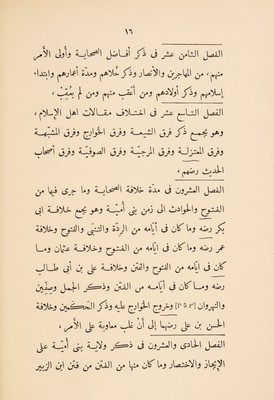 ١٦
الفصل الثامن عشر فى ذكر أفاضل الصحابة وأولى الأمر
منهم، من المهاجرين والأنصار وذكر حُلاهم ومدّة أعمارهم وابتداء
إسلامهم وذكر أولادهم ومن أعقب منهم ومن لم يعقِبْ،
الفصل التاسع عشر فى اختلاف مقالات اهل الإسلام،
وهو يجمع ذكر فرق الشيعة وفرق الخوارج وفرق المشبّهة
وفرق المعتزلة وفرق المرجيّة وفرق الصوفيّة وفرق أصحاب
الحديث رضهم،
الفصل العشرون فى مدّة خلافة الصحابة وما جرى فيها من
الفتوح والحوادث الى زمن بنى أميّة وهو يجمع خلافة ابى
بكر رضه وما كان فى أيّامه من الرِدّة والتنبّى والفتوح وخلافة
عمر رضه وما كان فى ايّامه من الفتوح وخلافة عثمان وما
كان فى ايّامه من الفتوح والفتن وخلافة على بن أبى طالب
رضه وما كان فى أيّامه من الفتن وذكر الجمل وصِفّين
والنهروان [٢° ٥ f°] وخروج الخوارج عليه وذكر الحَكَمين وخلافة
الحسن بن على رضهما إلى أنْ غلب معاوية على الأمر،
الفصل الحادى والعشرون فى ذكر ولاية بنى أميّة على
الإيجاز والاختصار وما كان منها من الفتن من فتن ابن الزبير